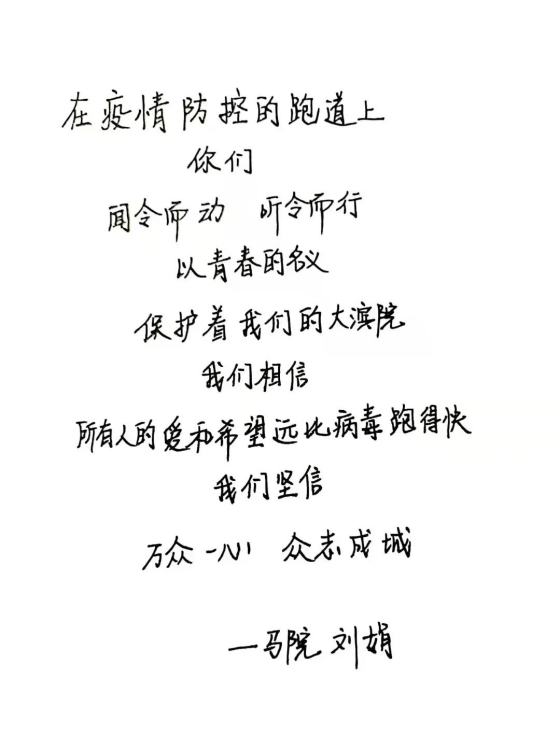 在疫情防控的跑道上
你们
闻令而动 听令而行
以青春的名义
保护着我们的大滨院
我们相信
所有人的爱和希望远比病毒跑得快
我们坚信
万众一心 众志成城
—马院 刘娟